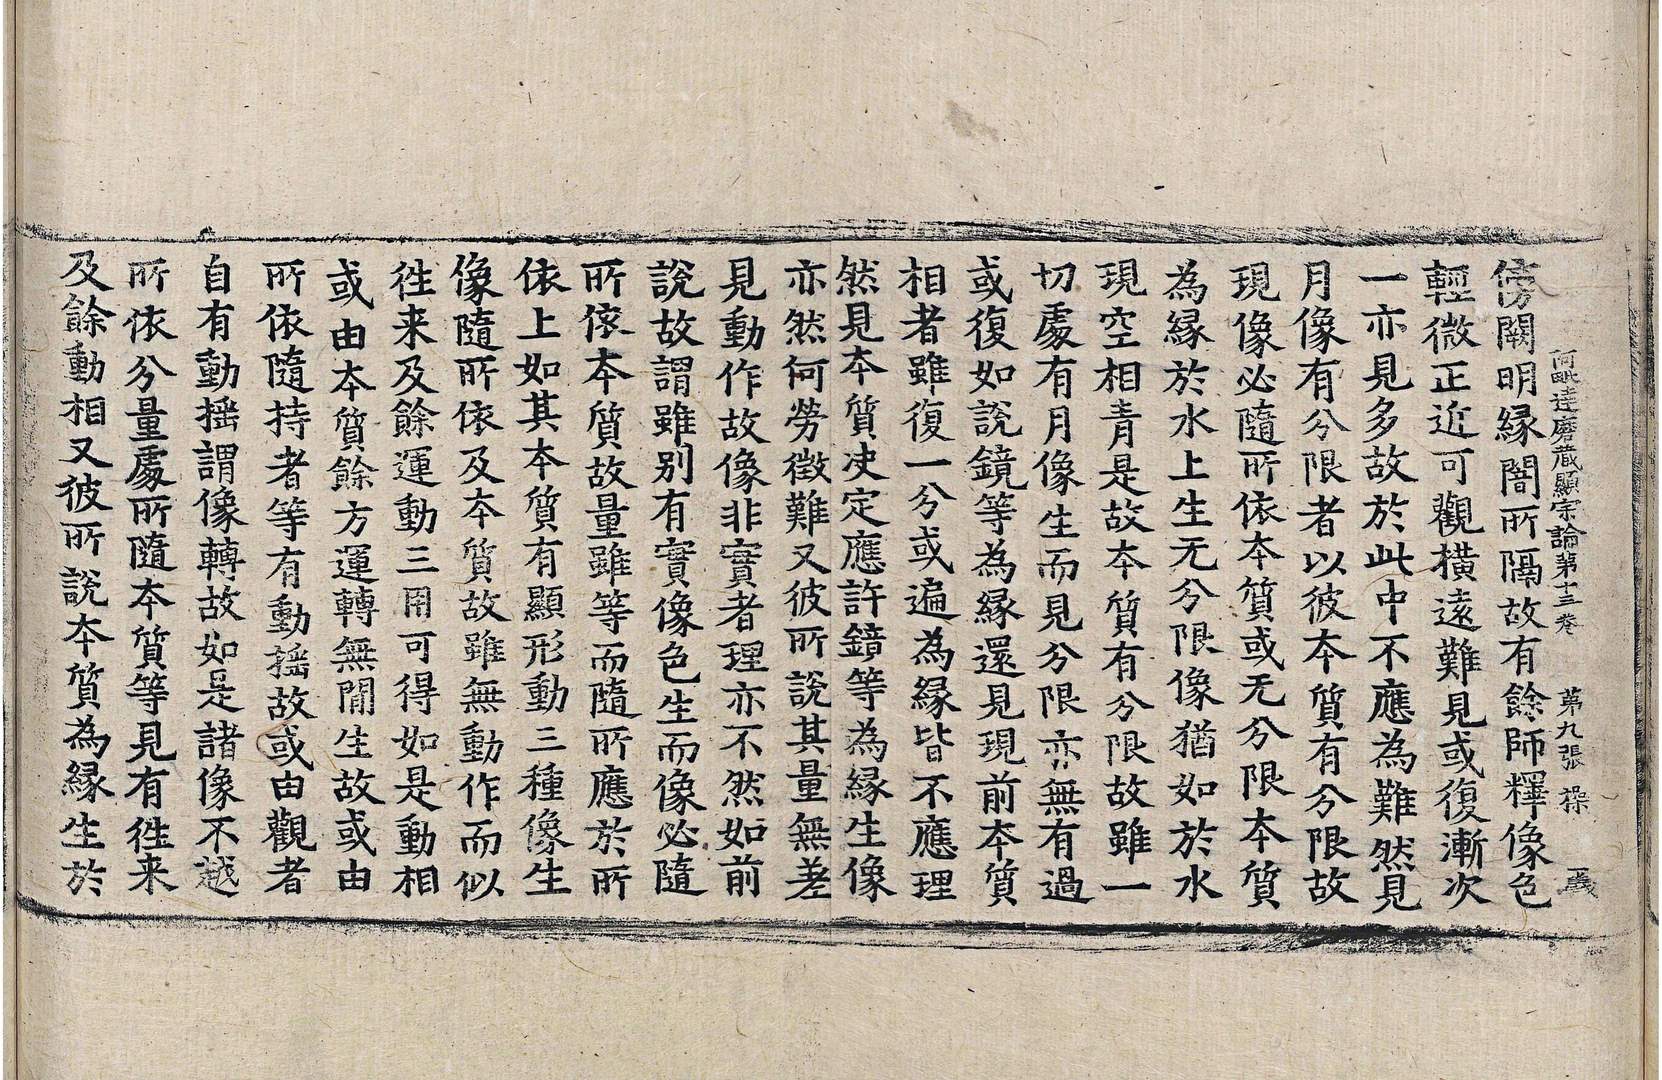 阿毗達磨藏顯宗論苐十三卷　苐九張　操　義
傍闕明縁闇所隔故有餘師釋像色
輕微正近可觀橫遠難見或復漸次
一亦見多故於此中不應為難然見
月像有分限者以彼本質有分限故
現像必隨所依本質或无分限本質
為縁於水上生无分限像猶如於水
現空相青是故本質有分限故雖一
切處有月像生而見分限亦無有過
或復如說鏡等為縁還見現前本質
相者雖復一分或遍為縁皆不應理
然見本質决定應許鏡等為縁生像
亦然何勞徵難又彼所說其量無差
見動作故像非實者理亦不然如前
說故謂雖別有實像色生而像必隨
所依本質故量雖等而隨所應於所
依上如其本質有顯形動三種像生
像隨所依及本質故雖無動作而似
徃来及餘運動三用可得如是動相
或由本質餘方運轉無間生故或由
所依隨持者等有動揺故或由觀者
自有動揺謂像轉故如是諸像不越
所依分量處所隨本質等見有徃来
及餘動相又彼所說本質為縁生於